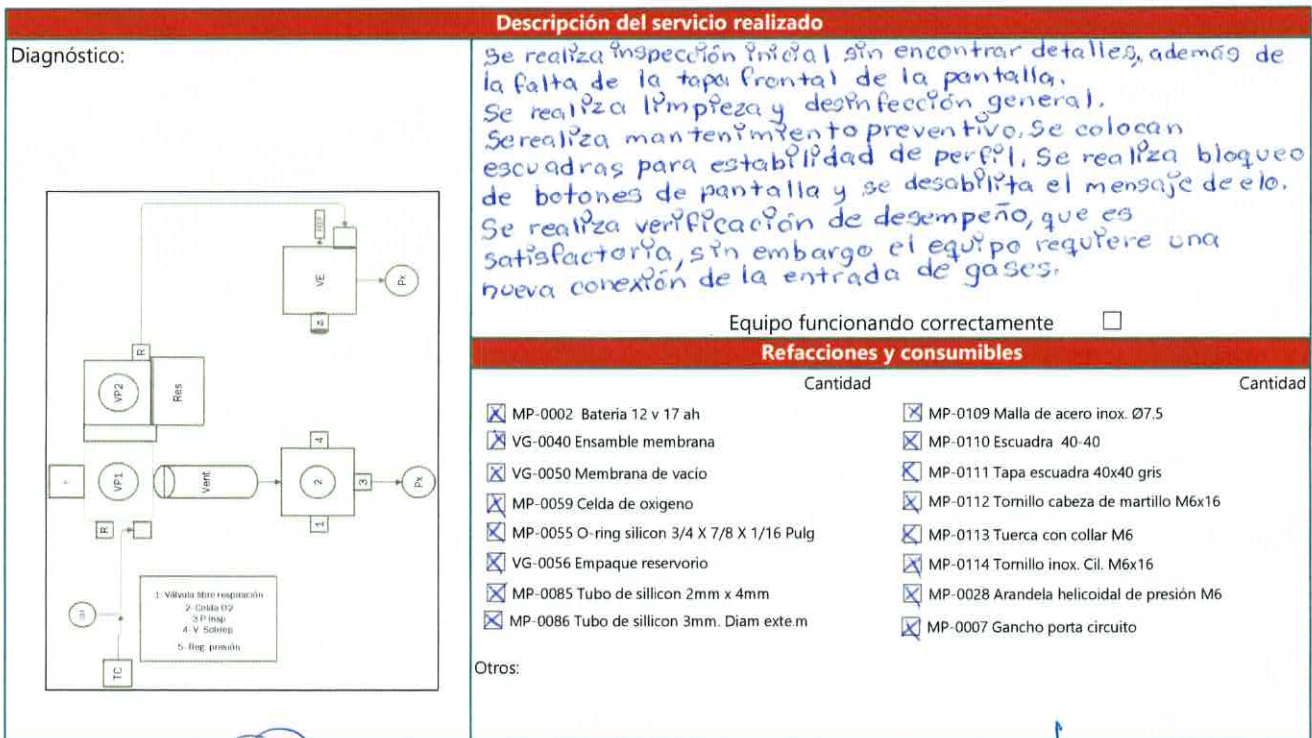 Descripción del servicio realizado
Diagnóstico:
Se realiza inspección inicial sin encontrar detalles, además de
la falta de la tapa frontal de la pantalla.
Se realiza limpieza y desinfección general.
Se realiza mantenimiento preventivo. Se colocan
escuadras para estabilidad de perfil. Se realiza bloqueo
de botones de pantalla y se desabilita el mensaje de elo.
Se realiza verificación de desempeño, que es
satisfactoria, sin embargo el equipo requiere una
nueva conexión de la entrada de gases.
Equipo funcionando correctamente
VE
Px
R
VP2
Res
VP1
Vent
4
2
3
Px
1
R
TC
1- Válvula libre respiración
2- Celda O2
3 P Insp
4- V Sobrep
5- Reg. presión
Refacciones y consumibles
Cantidad
Cantidad
MP-0002 Bateria 12 v 17 ah
VG-0040 Ensamble membrana
VG-0050 Membrana de vacio
MP-0059 Celda de oxigeno
MP-0055 O-ring silicon 3/4 X 7/8 X 1/16 Pulg
VG-0056 Empaque reservorio
MP-0085 Tubo de sillicon 2mm x 4mm
MP-0086 Tubo de sillicon 3mm. Diam exte.m
MP-0109 Malla de acero inox. Ø7.5
MP-0110 Escuadra 40-40
MP-0111 Tapa escuadra 40x40 gris
MP-0112 Tornillo cabeza de martillo M6x16
MP-0113 Tuerca con collar M6
MP-0114 Tornillo inox. Cil. M6x16
MP-0028 Arandela helicoidal de presión M6
MP-0007 Gancho porta circuito
Otros: